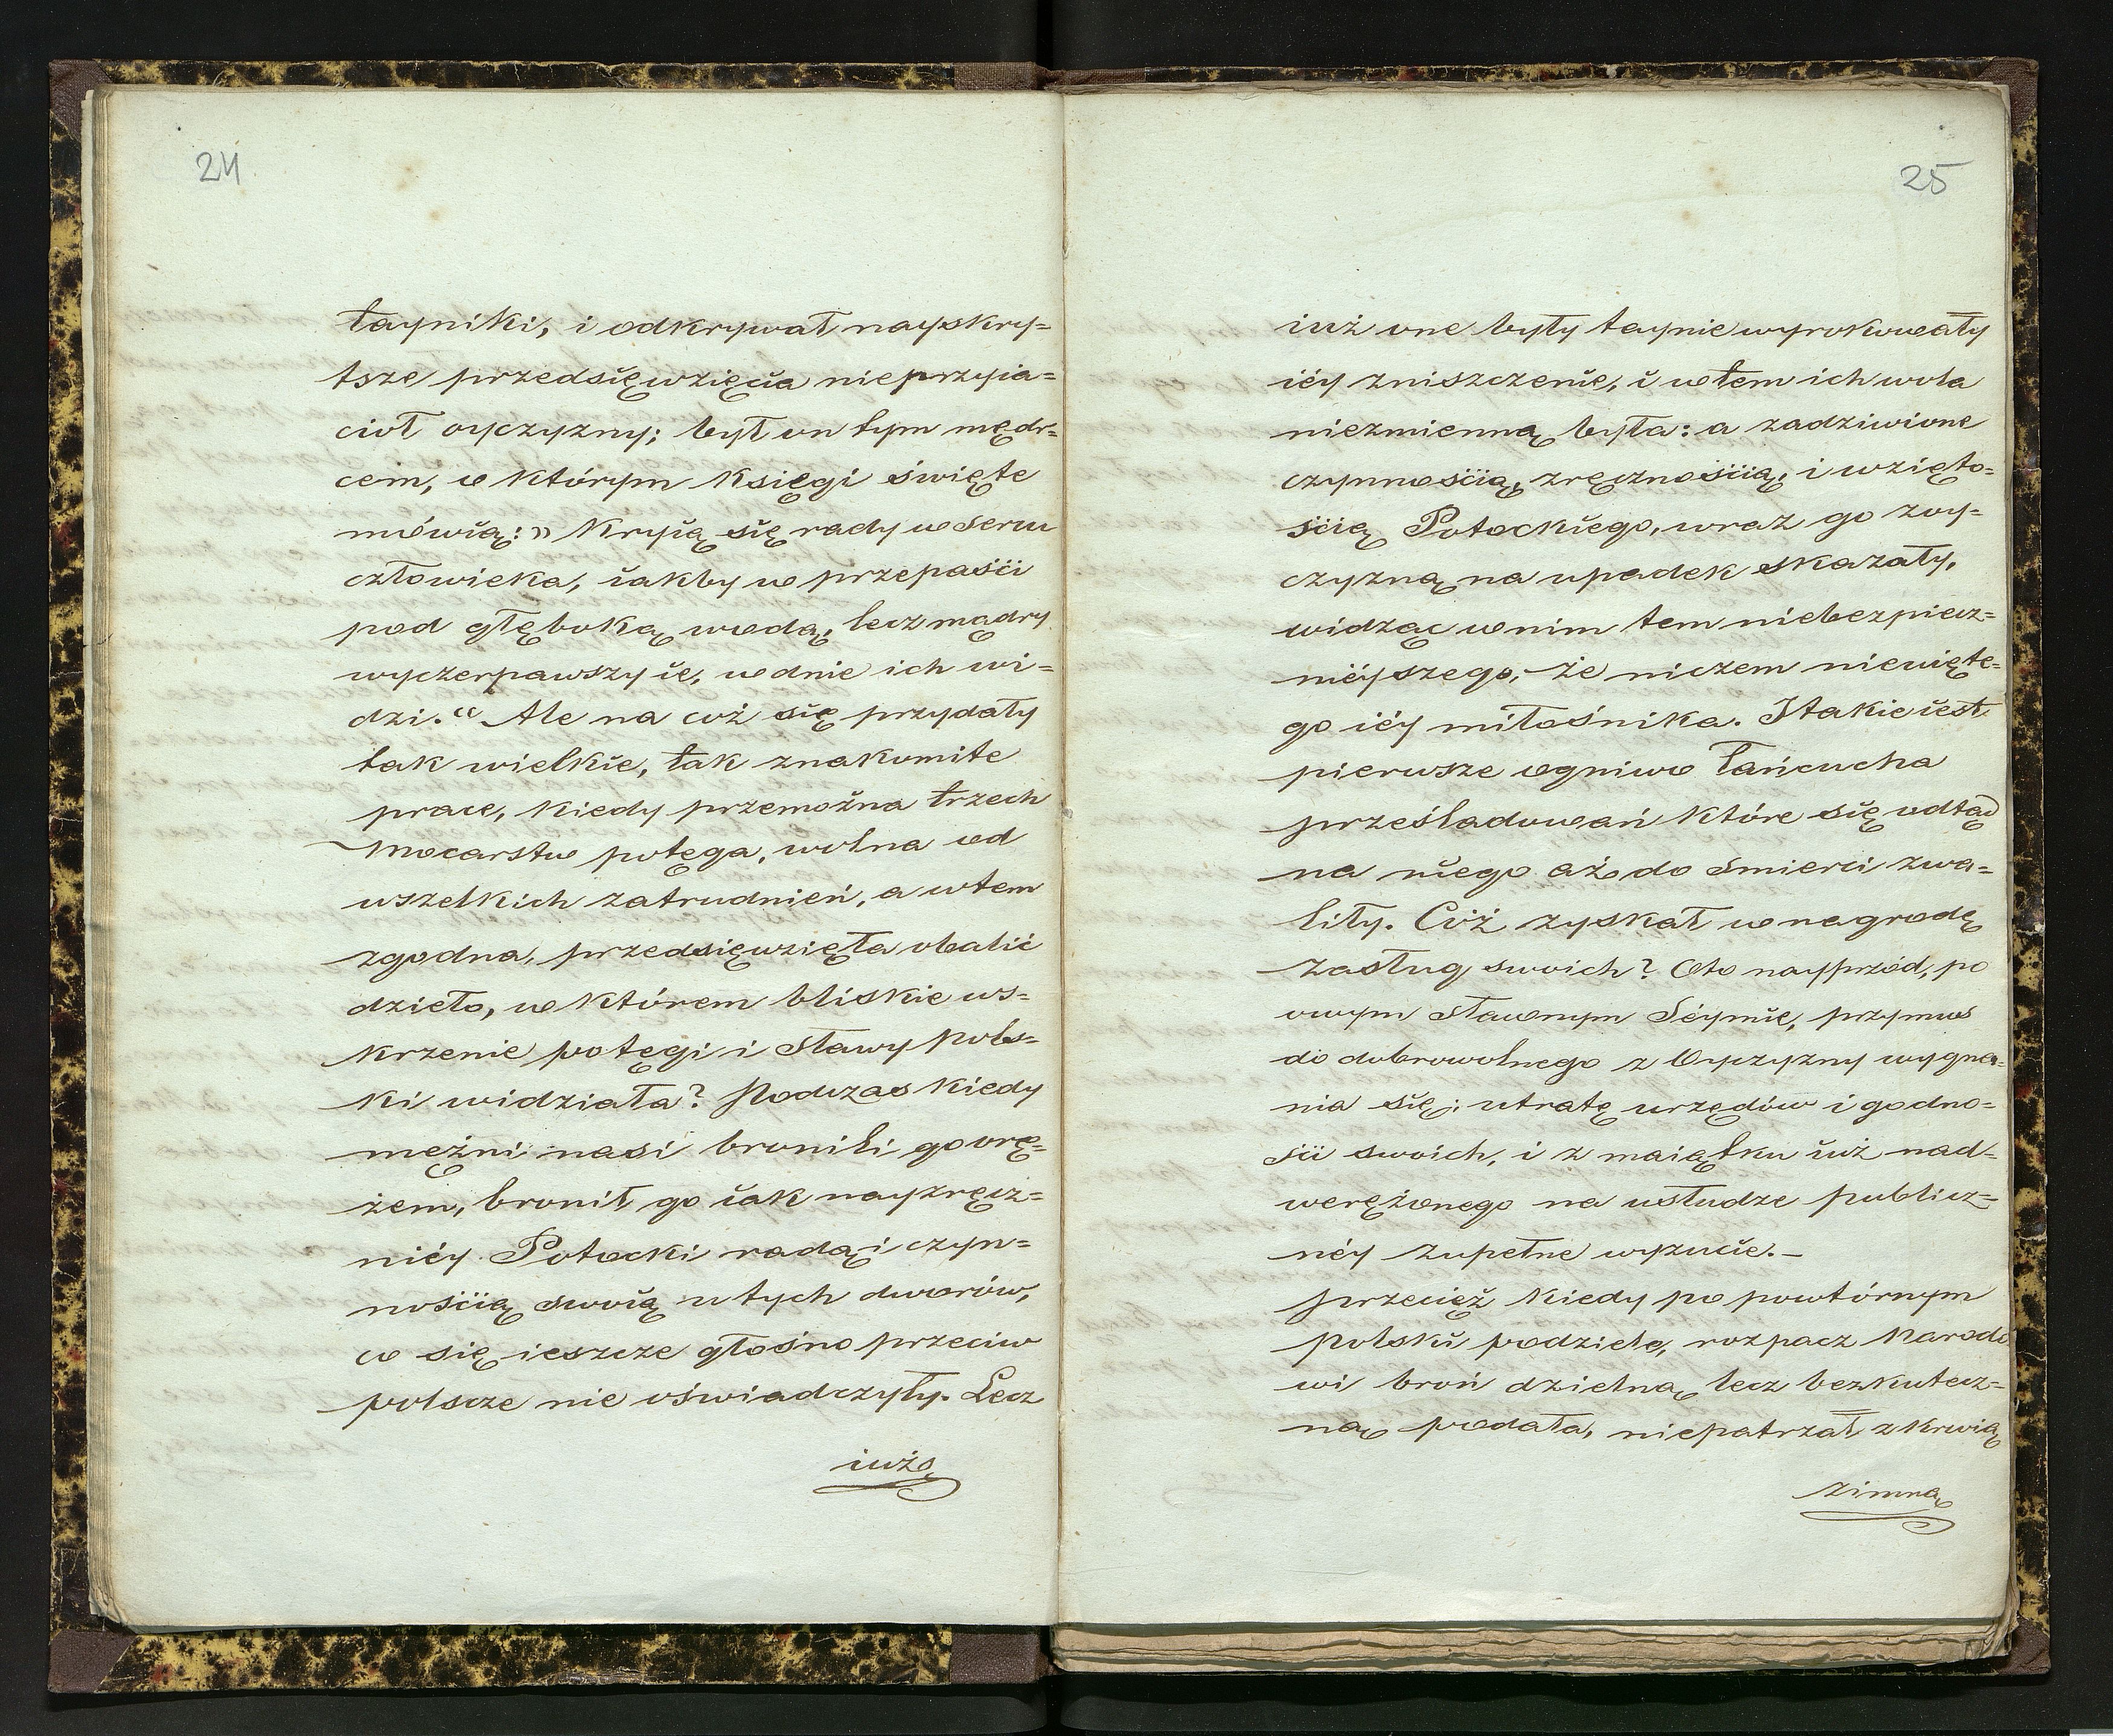 24
tayniki, i odkrywał nayskry=
tsze przedsięwzięcia nieprzyia=
ciół oyczyzny; był on tym mędr=
cem, w którym księgi święte
mówią: » Kryią się rady w sercu
człowieka, iakby w przepaści
pod głęboką wodą, lecz mądry
wyczerpawszy ie, w dnie ich wi=
dzi.“ Ale na cóż się przydały
tak wielkie, tak znakomite
prace, kiedy przemożna trzech
Mocarstw potęga, wolna od
wszelkich zatrudnień, a w tem
zgodna, przedsięwzięła obalić
dzieło, w którem bliskie ws=
krzenie potęgi i Sławy pols=
ki widziała? Podczas kiedy
mężni nasi bronili go orę=
żem, bronił go iak nayzręcz=
niéy Potocki radą i czyn=
nością swoią u tych dworów,
co się ieszcze głośno przeciw
polscze nie oświadczyły. Lecz
iuż
25
iuż one były taynie wyrokowały
iéy zniszczenie, i w tem ich wola
niezmienną była: a zadziwione
czynnością, zręcznością, i wzięto=
ścią Potockiego, wraz go z oy=
czyzną na upadek skazały,
widząc w nim tem niebezpiecz=
niéyszego, że niczem nieuięte=
go iéy miłośnika. I takie iest
pierwsze ogniwo łańcucha
prześladowań które się odtąd
na niego aż do śmierci zwa=
liły. Cóż zyskał w nagrodę
zasług swoich? Oto nayprzód, po
owym sławnym Séymie, przymus
do dobrowolnego z Oyczyzny wygna=
nia się; utratę urzędów i godno=
ści swoich, i z maiątku iuż nad=
werężonego na usłudze publicz=
néy zupełne wyzucie.—
Przecięż kiedy po powtórnym
Polski podziele, rozpacz Narodo
wi broń dzielną lecz bezkutecz=
ną podała, niepatrzał z krwią
zimną